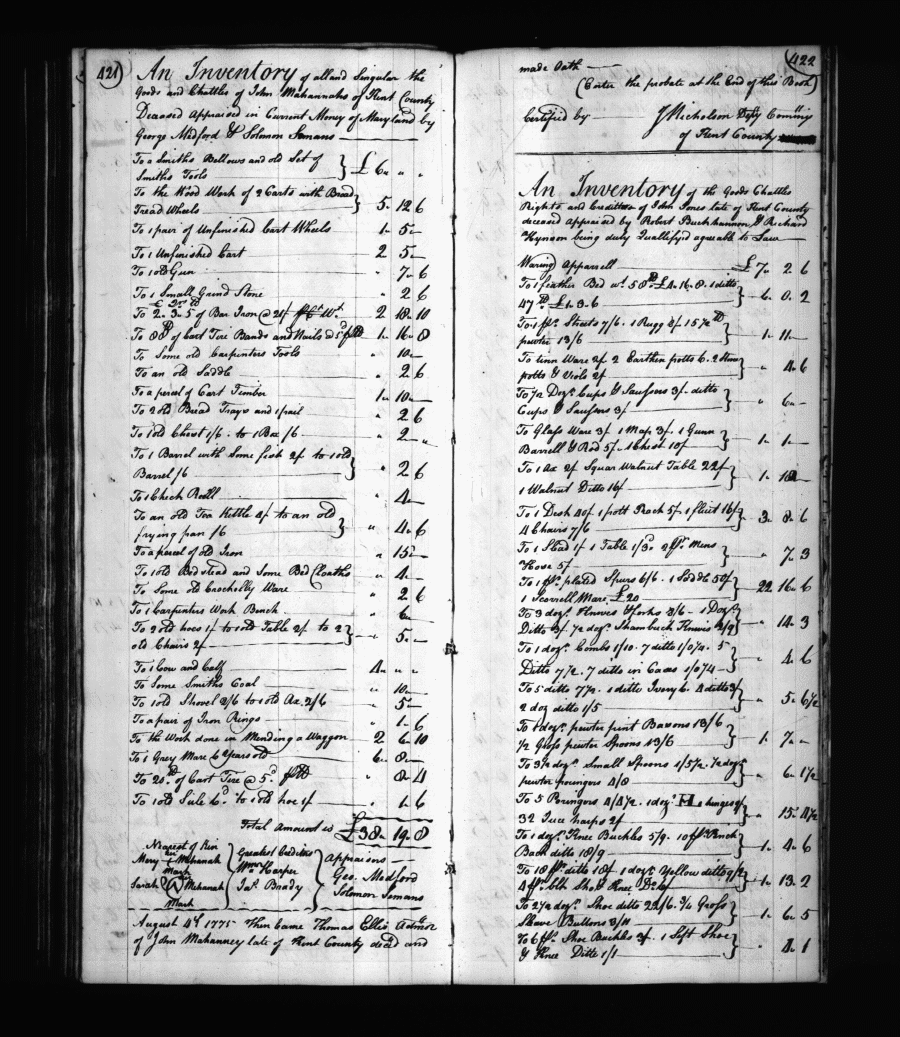 421
An Inventory of all and Singular the
Goods and Chattles of John Mahannahs of Kent County
Deceased Appraised in Current Money of Maryland by
George Medford & Solomon Semans
To a Smiths Bellows and old Set of
Smiths Tools } £ 6 " "
To the Wood Work of 2 Carts with Broad
Tread Wheels } 5 12 6
To 1 pair of Unfinished Cart Wheels 1 5
To 1 Unfinished Cart 2 5
To 1 old Gun " 7 6
To 1 Small Grind Stone " 2 6
To 2. 3. 5 of Bar Iron @ 21/ 2 18 10
To 88 lb of Cart Tire Bands and Nails @ 5d 1 16 8
To Some old Carpenters Tools " 10
To an old Saddle " 2 6
To a percel of Cart Timber 1 10
To 2 old Bread Trays and 1 pail " 2 6
To 1 old Chest 1/6 . to 1 Box /6 " 2 "
To 1 Barrel with Some fish 2/ to 1 old
Barrel /6 } " 2 6
To 1 Check Reell " 4
To an old Tea Kettle 4/ to an old
frying pan /6 } " 4 6
To a percel of old Iron " 15
To 1 old Bedstead and Some Bed Cloaths " 4
To Some old Crochelly Ware " 2 6
To 1 Carpenters Work Bench " 6
To 2 old hoes 1/ to 1 old Table 2/ to 2
old Chairs 2/ } " 5
To 1 Cow and Calf 4 " "
To Some Smiths Coal " 10
To 1 old Shovel 2/6 to 1 old Ax 2/6 " 5
To a pair of Iron Rings " 1 6
To the Work done in Mending a Waggon 2 6 10
To 1 Grey Mare 6 Years old 6 8
To 20 lb of Cart Tire @ 5d " 8 4
To 1 old Side 6d to 1 old hoe 1/ " 1 6
Total Amount is £38 19 8
Nearest of Kin
Mary Mahanah
Mark
Sarah Mahanah
Mark
Greatest Creditors
Wm Harper
Jas Brady
Appraisors
Geo. Medford
Solomon Semans
August 4th 1775 Then Came Thomas Ellis Admor
of John Mahanney late of Kent County decd and
422
made Oath
(Enter the probate at the End of this Book)
Certified by J Nicholson Depy Commiy
of Kent County
An Inventory of the Goods Chattles
Rights and Credittes of John Jones late of Kent County
deceased appraised by Robert Buckhannon & Richard
Hynson being duly Quallifyd agreable to Law
Waring Apparrell £ 7 2 6
To 1 feather Bed wt. 58 lb £4. 16. 8. 1 ditto
47 lb £1. 3. 6 } 6. 0. 2
To 1 pr. Sheets 7/6 . 1 Rugg 8/ 15 1/2 lb
pewter 13/6 } 1. 11
To tinn Ware 2/ 2 Earthen potts 6. 2 Stone
potts & Viols 2/ } " 4. 6
To 1/2 Dozn Cups & Saussers 3/ ditto
Cups & Saussers 3/ } " 6
To Glass Ware 3/ 1 Map 3/ . 1 Gunn
Barrell & Rod 5/ . 1 Chest 10/ } 1. 1
To 1 Ax 2/ Squar Walnut Table 22/
1 Walnut Ditto 16/ } 1. 18
To 1 Desk 40/ 1 pott Rack 5/ 1 16/
4 Chairs 7/6 } 3. 8. 6
To 1 Sled 1/ 1 Table 1/3. 2 pr. Mens
Hose 5/ } 7. 3
To 1 pr. plated Spurs 6/6 . 1 Saddle 50/
1 Sorrell Mare £20 } 22 16 6
To 3 dozn. Knives & forks 8/6 - 1 Dozn
Ditto 3/ 1/2 dozn Shambuck Knives 2/9 } " 14. 3
To 1 dozn. Combs 1/10. 7 ditto 1/0 3/4. 5
Ditto 7 1/2. 7 ditto in Cases 1/0 3/4 } " 4. 6
To 5 ditto 7 1/2. 1 ditto Ivery 6. 4 ditto 3/
2 dog ditto 1/5 } " 5. 6 1/2
To 1 dozn. pewter pint Basons 13/6
1/2 Gross pewter Spoons 13/6 } 1. 7
To 3 1/2 dozn. Small Spoons 1/5 1/2. 1/2 dozn
pewter poringers 4/8 } " 6. 1 1/2
To 5 Poringers 4/4 1/2. 1 dozn. HL hinges 9/
32 Juce harps 2/ } " 15. 4 1/2
To 1 dozn. Knee Buckles 5/9. 10 pr. Pinch
Back ditto 18/9 } 1. 4. 6
To 18 pr. ditto 18/ 1 dozn Yellow ditto 9/2
4 pr. blk Shoe & Knee Do 6/ } 1. 13. 2
To 2 1/2 dozn. Shoe ditto 22/6. 3/4 Gross
Sleave Buttons 3/11 } 1. 6. 5
To 6 pr. Shoe Buckles 3/. 1 Sett Shoe
& Knee Ditte 1/1 } " 4. 1